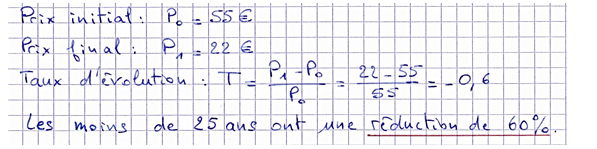 Prix initial : P₀ = 55 €
Prix final : P₁ = 22 €
Taux d'évolution : T = (P₁ - P₀) / P₀ = (22 - 55) / 55 = -0,6
Les moins de 25 ans ont une réduction de 60%.